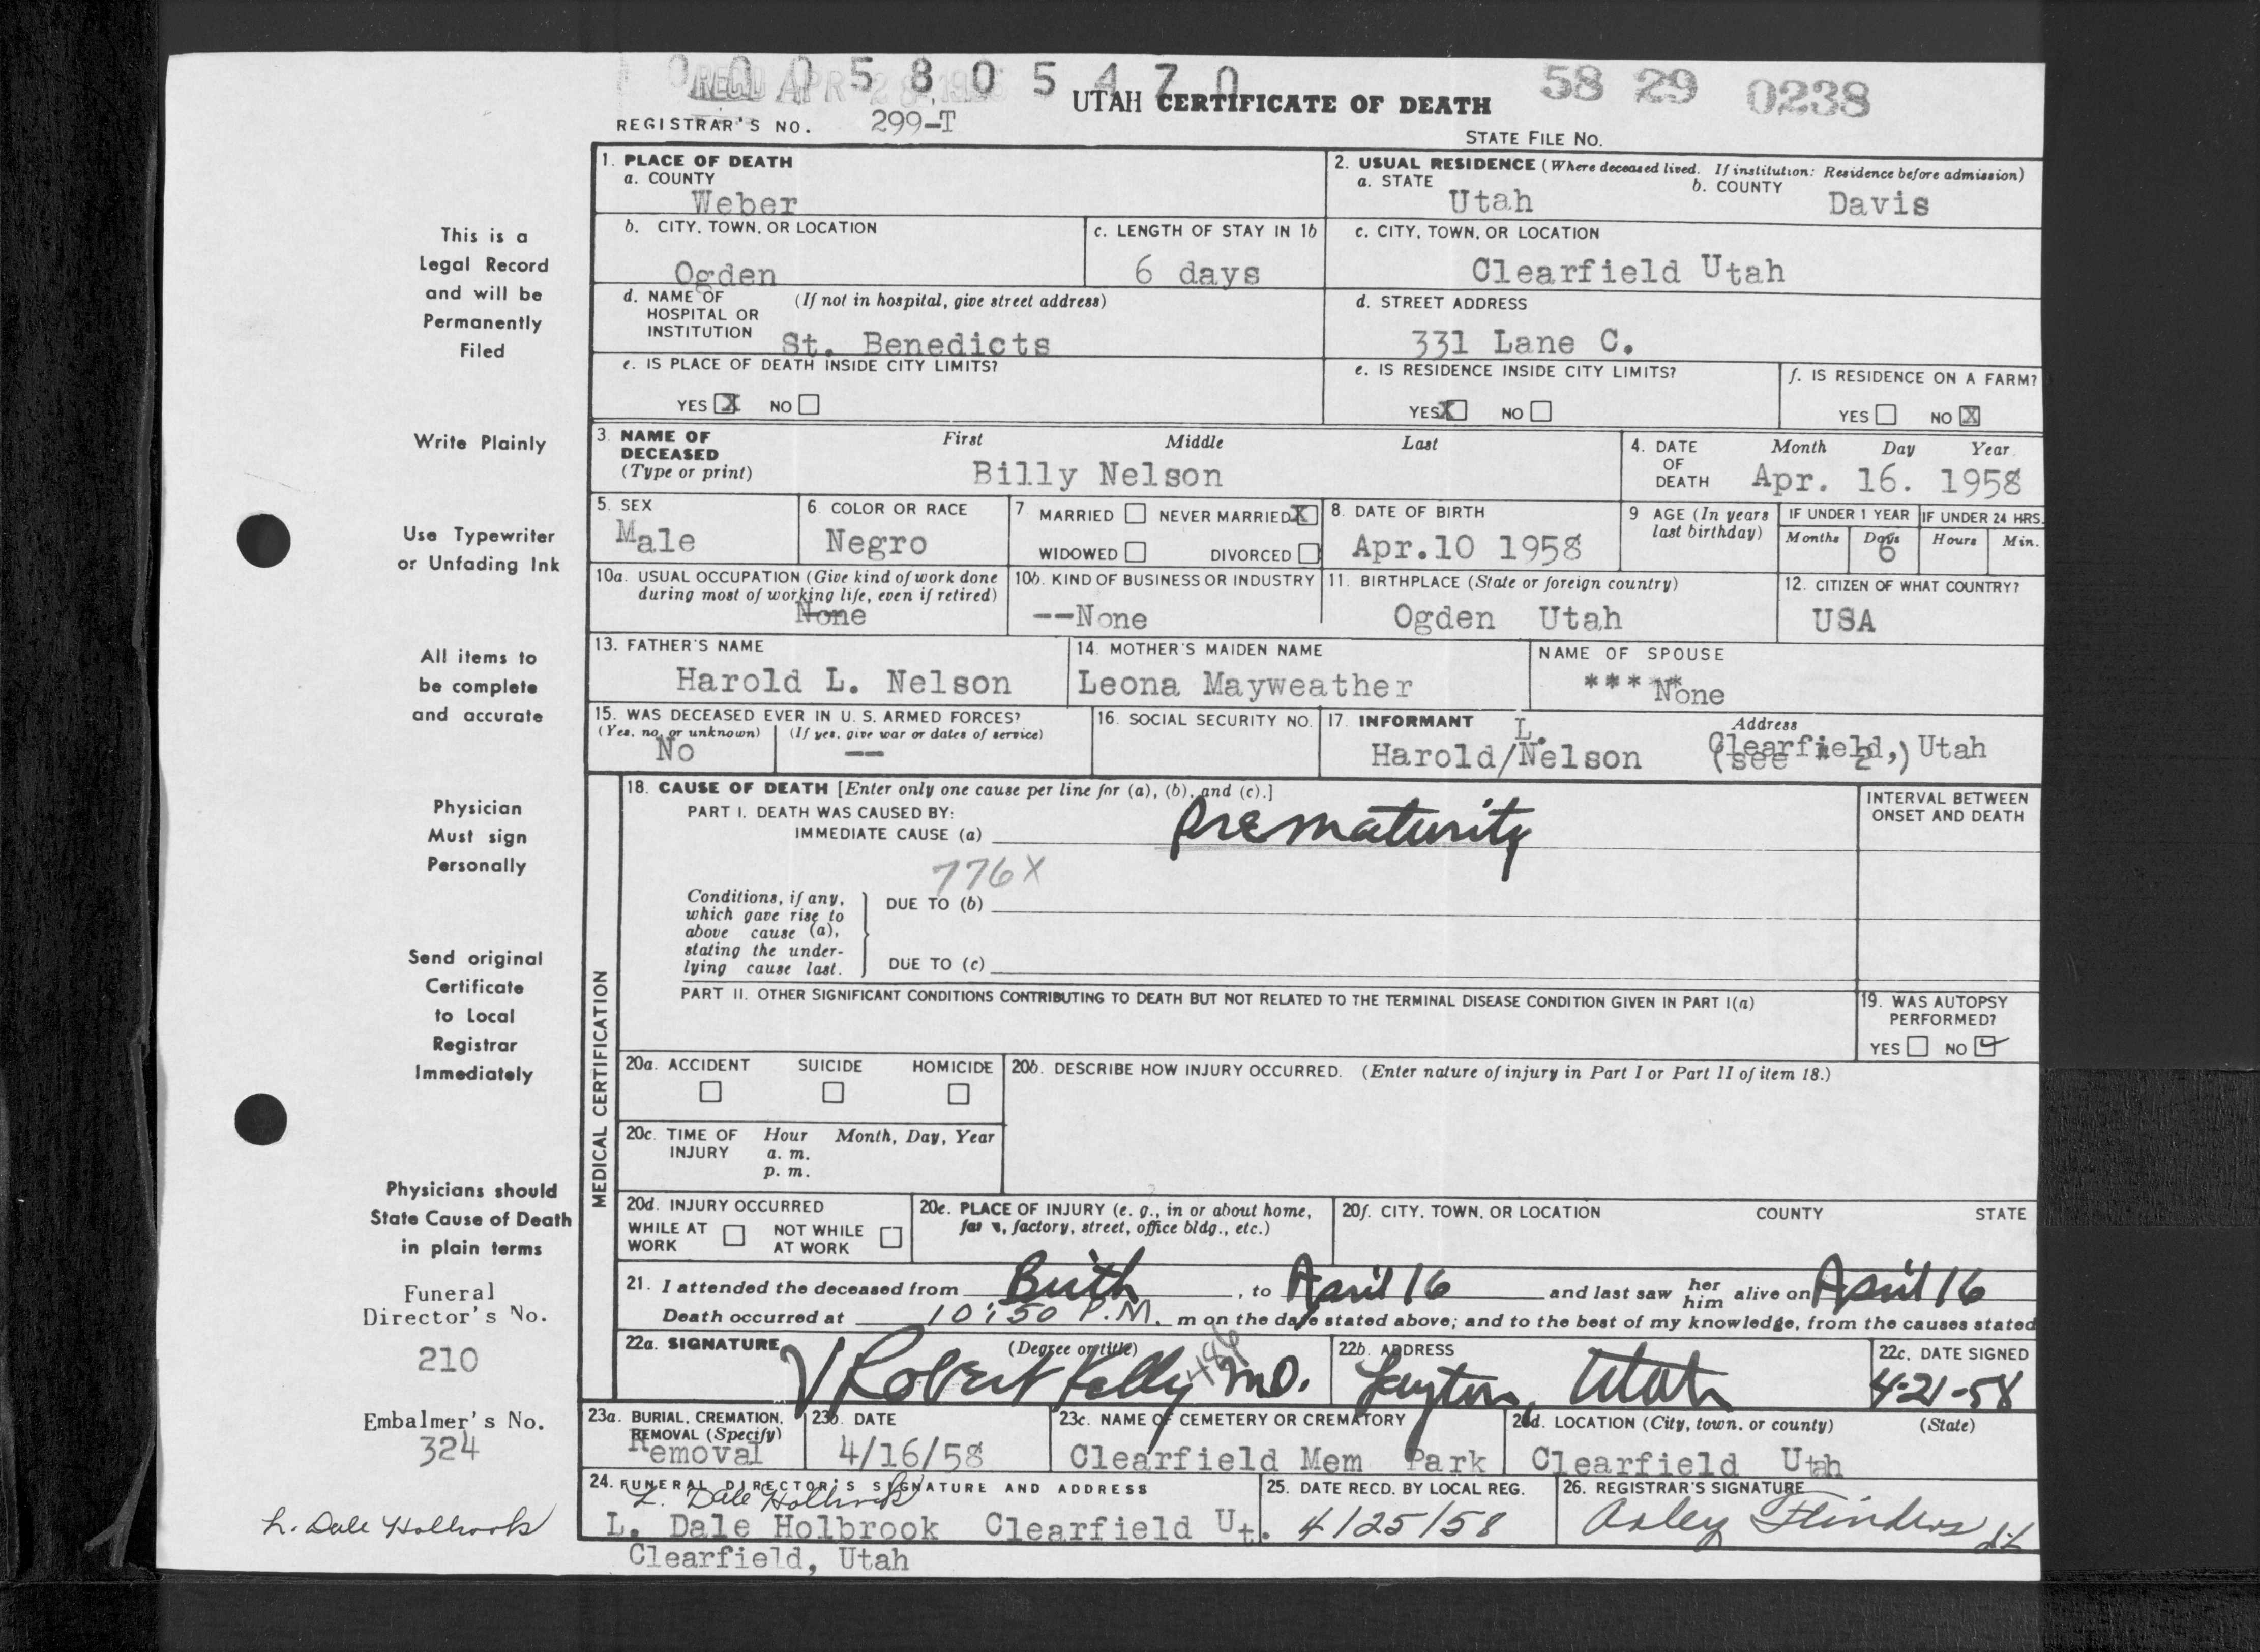 0005805470
RECD APR 28 195
58 29 0238
UTAH CERTIFICATE OF DEATH
REGISTRAR'S NO. 299-T
STATE FILE NO.
1. PLACE OF DEATH
a. COUNTY
Weber
2. USUAL RESIDENCE (Where deceased lived. If institution: Residence before admission)
a. STATE
Utah
b. COUNTY
Davis
b. CITY, TOWN, OR LOCATION
Ogden
c. LENGTH OF STAY IN 1b
6 days
c. CITY, TOWN, OR LOCATION
Clearfield Utah
d. NAME OF HOSPITAL OR INSTITUTION
(If not in hospital, give street address)
St. Benedicts
d. STREET ADDRESS
331 Lane C.
e. IS PLACE OF DEATH INSIDE CITY LIMITS?
YES X NO
e. IS RESIDENCE INSIDE CITY LIMITS?
YES X NO
f. IS RESIDENCE ON A FARM?
YES NO X
3. NAME OF DECEASED
(Type or print)
First Middle Last
Billy Nelson
4. DATE OF DEATH
Month Day Year
Apr. 16. 1958
5. SEX
Male
6. COLOR OR RACE
Negro
7 MARRIED NEVER MARRIED X
WIDOWED DIVORCED
8. DATE OF BIRTH
Apr.10 1958
9 AGE (In years last birthday)
IF UNDER 1 YEAR
Months Days
6
IF UNDER 24 HRS.
Hours Min.
10a. USUAL OCCUPATION (Give kind of work done during most of working life, even if retired)
None
10b. KIND OF BUSINESS OR INDUSTRY
--None
11. BIRTHPLACE (State or foreign country)
Ogden Utah
12. CITIZEN OF WHAT COUNTRY?
USA
13. FATHER'S NAME
Harold L. Nelson
14. MOTHER'S MAIDEN NAME
Leona Mayweather
NAME OF SPOUSE
**** None
15. WAS DECEASED EVER IN U. S. ARMED FORCES?
(Yes, no, or unknown)
No
(If yes, give war or dates of service)
--
16. SOCIAL SECURITY NO.
17. INFORMANT
L.
Harold/Nelson
Address
Clearfield, Utah
(see # 2 )
18. CAUSE OF DEATH [Enter only one cause per line for (a), (b), and (c).]
PART I. DEATH WAS CAUSED BY:
IMMEDIATE CAUSE (a) Prematurity
INTERVAL BETWEEN ONSET AND DEATH
776X
Conditions, if any, which gave rise to above cause (a), stating the underlying cause last.
DUE TO (b)
DUE TO (c)
PART II. OTHER SIGNIFICANT CONDITIONS CONTRIBUTING TO DEATH BUT NOT RELATED TO THE TERMINAL DISEASE CONDITION GIVEN IN PART I(a)
19. WAS AUTOPSY PERFORMED?
YES NO ✓
20a. ACCIDENT SUICIDE HOMICIDE
20b. DESCRIBE HOW INJURY OCCURRED. (Enter nature of injury in Part I or Part II of item 18.)
20c. TIME OF INJURY
Hour Month, Day, Year
a. m.
p. m.
20d. INJURY OCCURRED
WHILE AT WORK NOT WHILE AT WORK
20e. PLACE OF INJURY (e. g., in or about home, farm, factory, street, office bldg., etc.)
20f. CITY, TOWN, OR LOCATION COUNTY STATE
MEDICAL CERTIFICATION
21. I attended the deceased from Birth, to April 16 and last saw her him alive on April 16
Death occurred at 10:50 P.M. m on the date stated above; and to the best of my knowledge, from the causes stated
22a. SIGNATURE (Degree or title)
V Robert Kelly M.D.
22b. ADDRESS
Layton, Utah
22c. DATE SIGNED
4-21-58
23a. BURIAL, CREMATION, REMOVAL (Specify)
Removal
23b. DATE
4/16/58
23c. NAME OF CEMETERY OR CREMATORY
Clearfield Mem Park
23d. LOCATION (City, town, or county) (State)
Clearfield Utah
24. FUNERAL DIRECTOR'S SIGNATURE AND ADDRESS
L. Dale Holbrook
L. Dale Holbrook Clearfield Ut.
Clearfield, Utah
25. DATE RECD. BY LOCAL REG.
4/25/58
26. REGISTRAR'S SIGNATURE
Flinders
This is a
Legal Record
and will be
Permanently
Filed
Write Plainly
Use Typewriter
or Unfading Ink
All items to
be complete
and accurate
Physician
Must sign
Personally
Send original
Certificate
to Local
Registrar
Immediately
Physicians should
State Cause of Death
in plain terms
Funeral
Director's No.
210
Embalmer's No.
324
L. Dale Holbrook